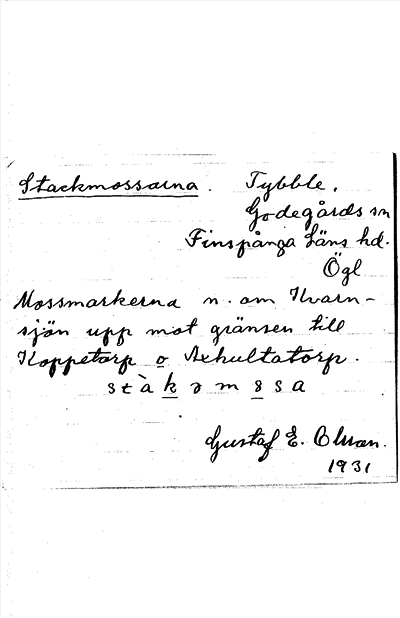 Stackmossarna. Tybble,
Godegårds sn
Finspånga Läns hd.
Ögl
Mossmarkerna n. om Kvarn-
sjön upp mot gränsen till
Koppetorp o Axhultatorp.
stàkəmssa
Gustaf E. Olsson.
1931